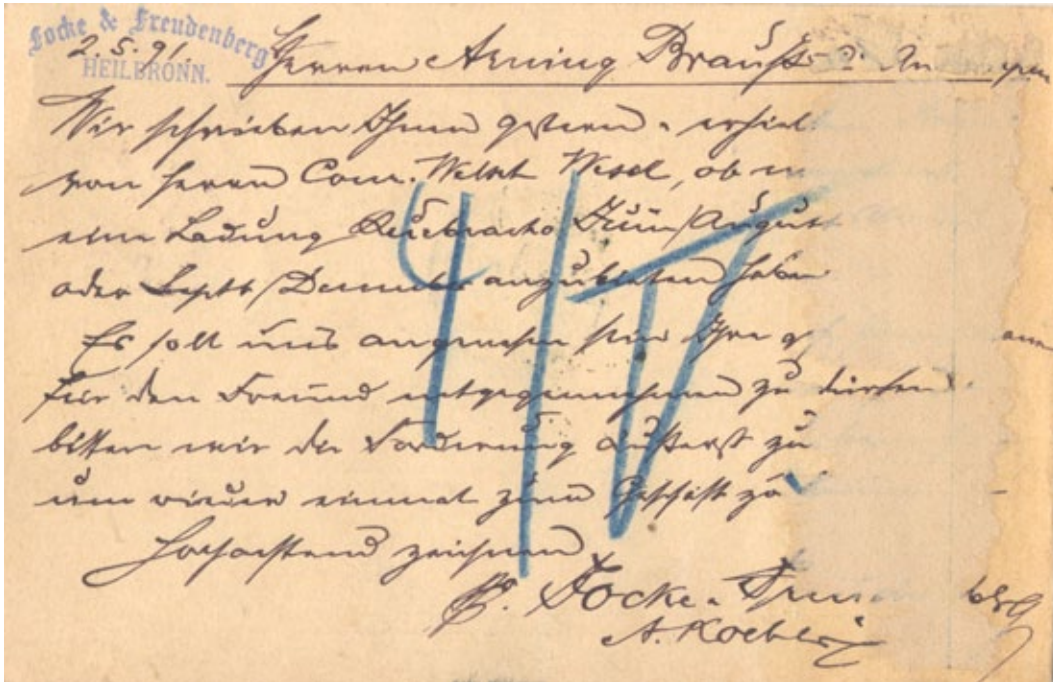 Focke & Freudenberg
HEILBRONN.
2.5.91.
Herren Arning Brauss &
Wir schrieben Ihnen gestern u. erhiel
von Herrn Welsch Wesel, ob
eine Ladung Quebracho Juni/August
oder Septb/Dezember anzubieten haben
Es soll uns angenehm sein Ihre
für den Freund entgegennehmen zu dürfen
bitten wir die Forderung äußerst zu
um wieder einmal zum Geschäft zu
Hochachtend zeichnen
Focke & 
A. Koehler